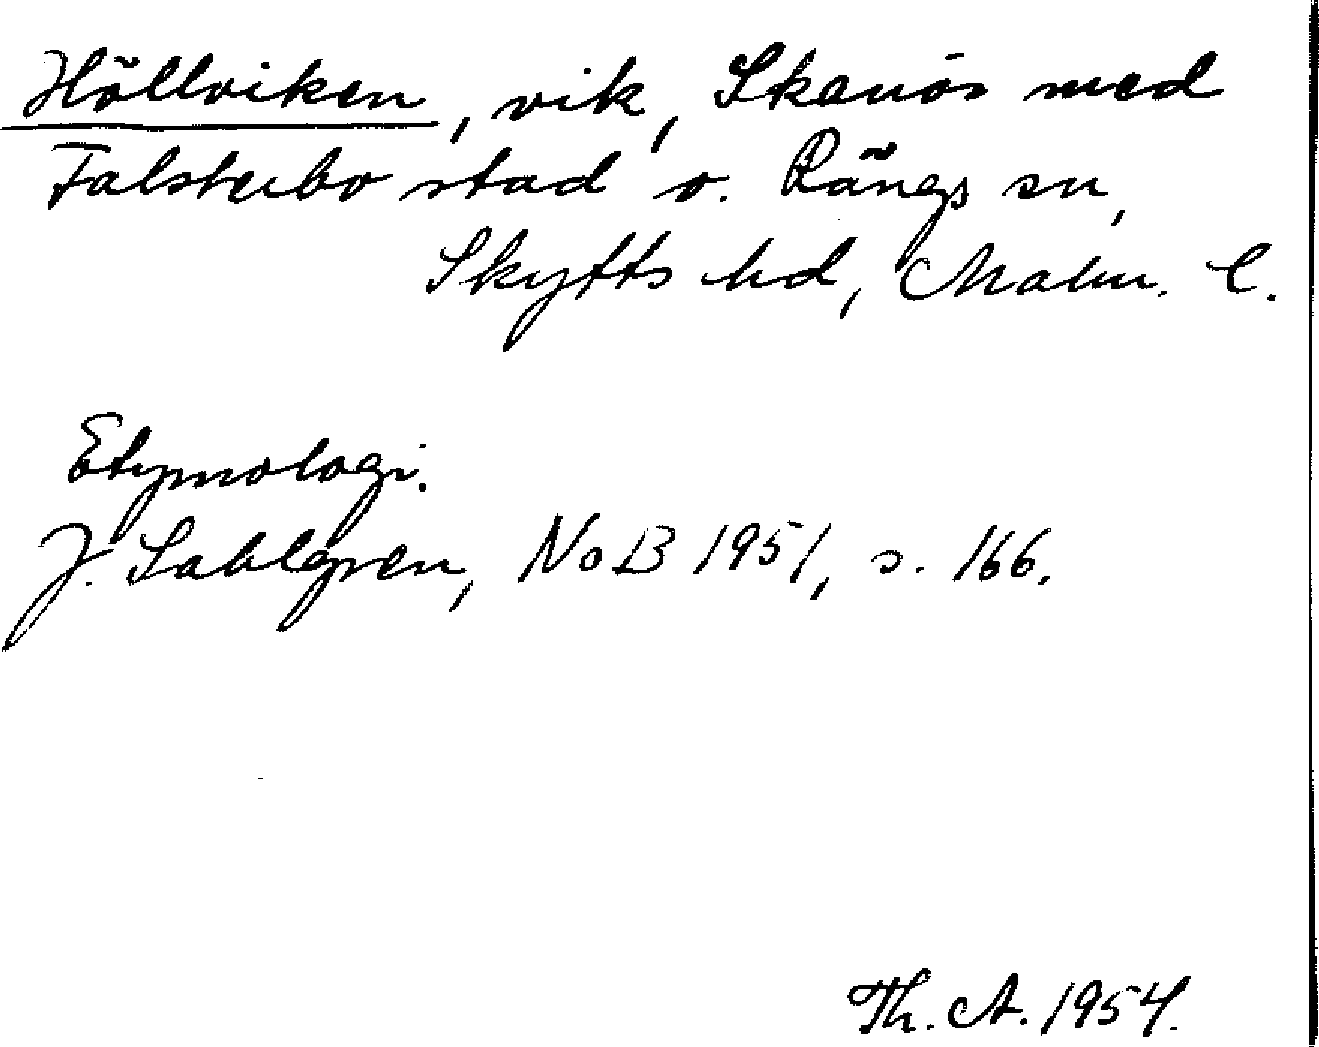 Höllviken, vik, Skanör med
Falsterbo stad o. Rängs sn,
Skytts hd, Malm. l.
Etymologi.
J. Sahlgren, NoB 1951, s. 166.
Th. A. 1954.